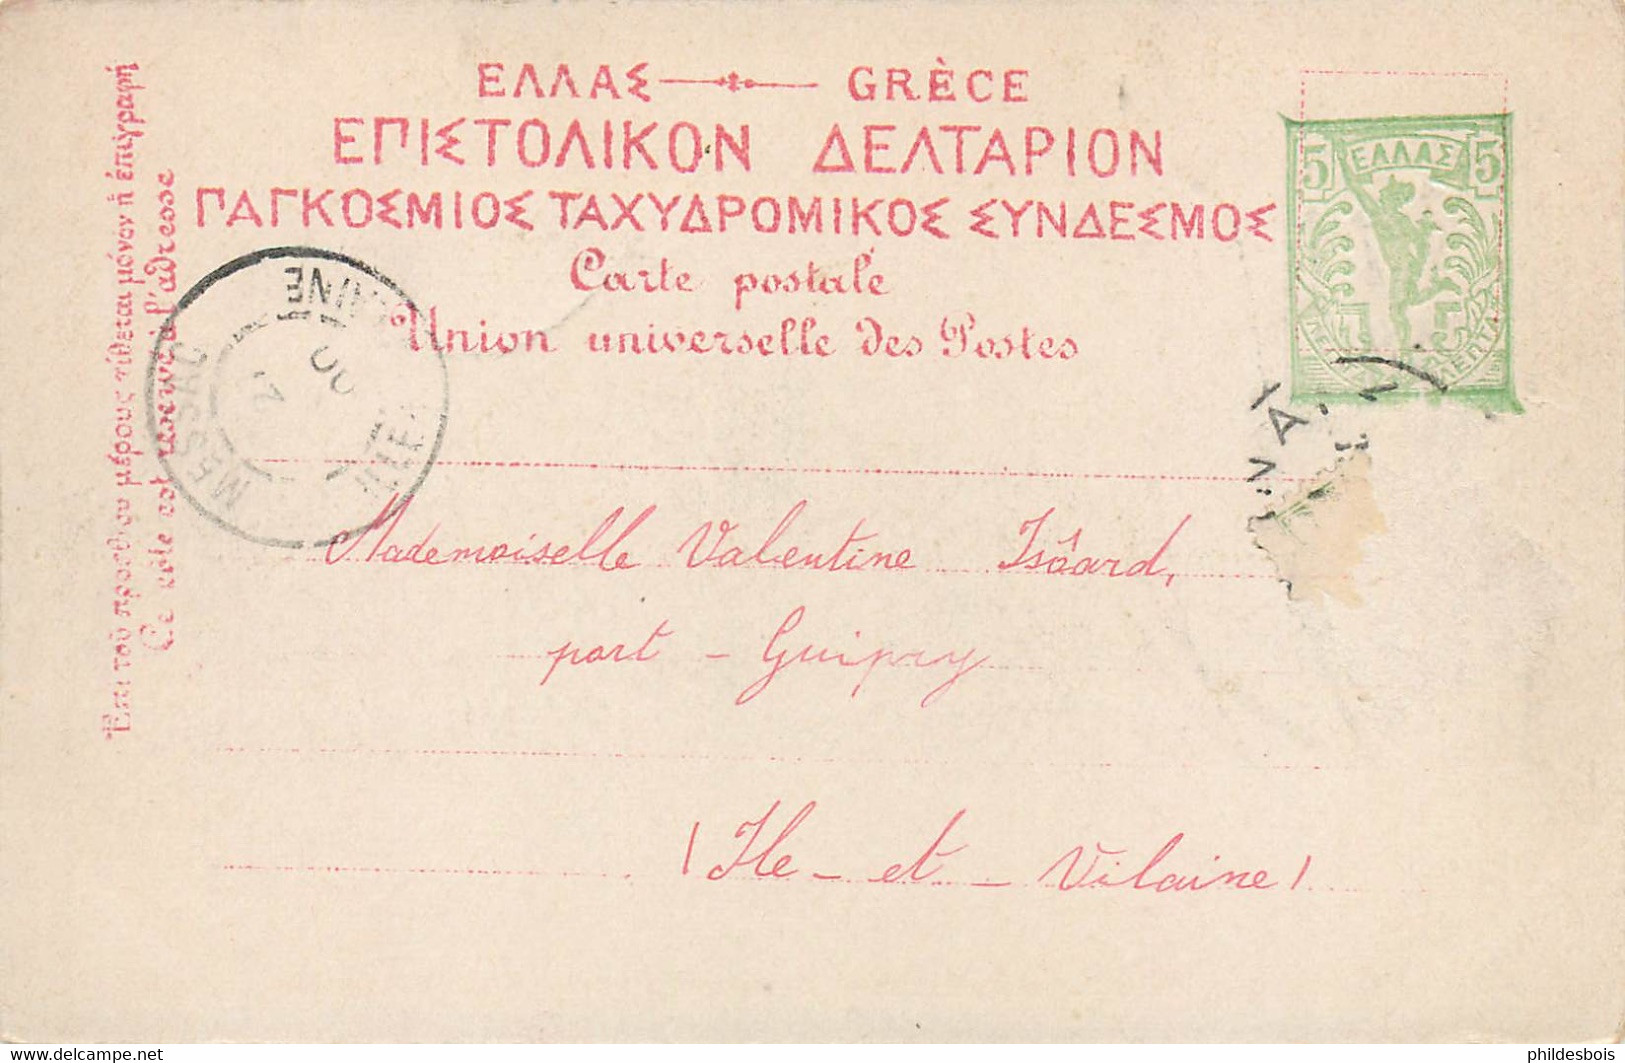 ΕΛΛΑΣ GRÈCE
ΕΠΙΣΤΟΛΙΚΟΝ ΔΕΛΤΑΡΙΟΝ
ΠΑΓΚΟΣΜΙΟΣ ΤΑΧΥΔΡΟΜΙΚΟΣ ΣΥΝΔΕΣΜΟΣ
Carte postale
Union universelle des Postes
Ἐπὶ τοῦ προσθίου μέρους τίθεται μόνον ἡ ἐπιγραφή
Ce côté est reservé à l'adresse
5 ΕΛΛΑΣ 5
ΛΕΠΤΑ
MESSAC
Mademoiselle Valentine Isôard,
port - Guipry
(Ile - et - Vilaine)
www.delcampe.net
phildesbois